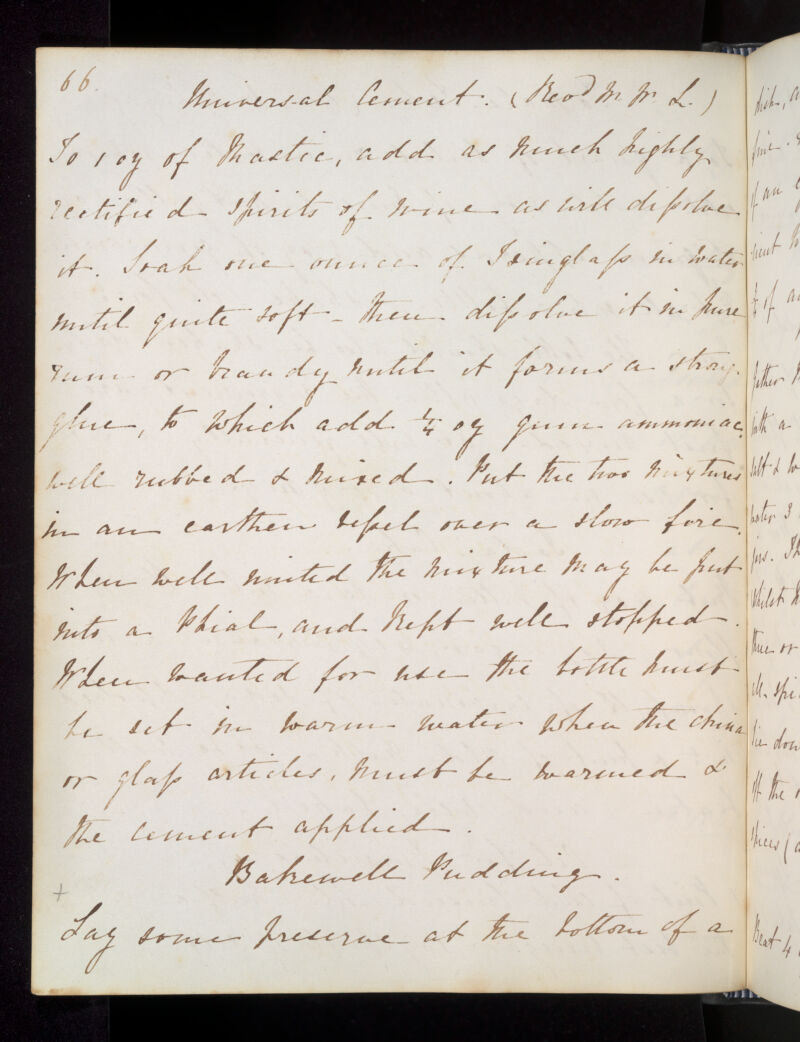 66.
Universal Cement. (Recd M M L.)
To 1 oz of Mastic, add as much highly
rectified spirits of wine as will dissolve
it. Soak one ounce of Isinglass in water
until quite soft - then dissolve it in pure
rum or brandy until it forms a strong
glue, to which add 1/4 oz gum ammoniac,
well rubbed & mixed. Put the two mixtures
in an earthen vessel over a slow fire.
When well united the mixture may be put
into a Phial, and kept well stopped.
When wanted for use the bottle must
be set in warm water when the china
or glass articles, must be warmed &
the cement applied.
Bakewell Pudding.
+
Lay some preserve at the bottom of a
dish, a
fine.
of an
of
a
water 3
Whilst
three or
all spi
lie down
off the
spices (a
Beat 4